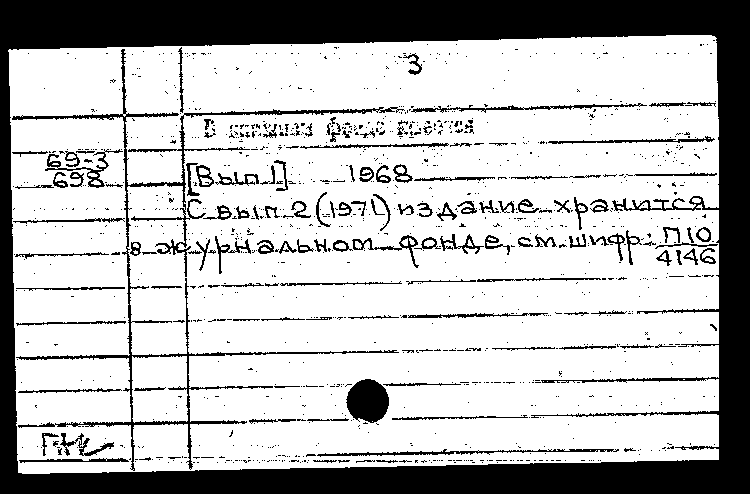 3
В книжном фонде имеется
69-3
698
[Вып 1] 1968
С вып 2 (1971) издание хранится
в журнальном фонде, см. шифр: П10
4146